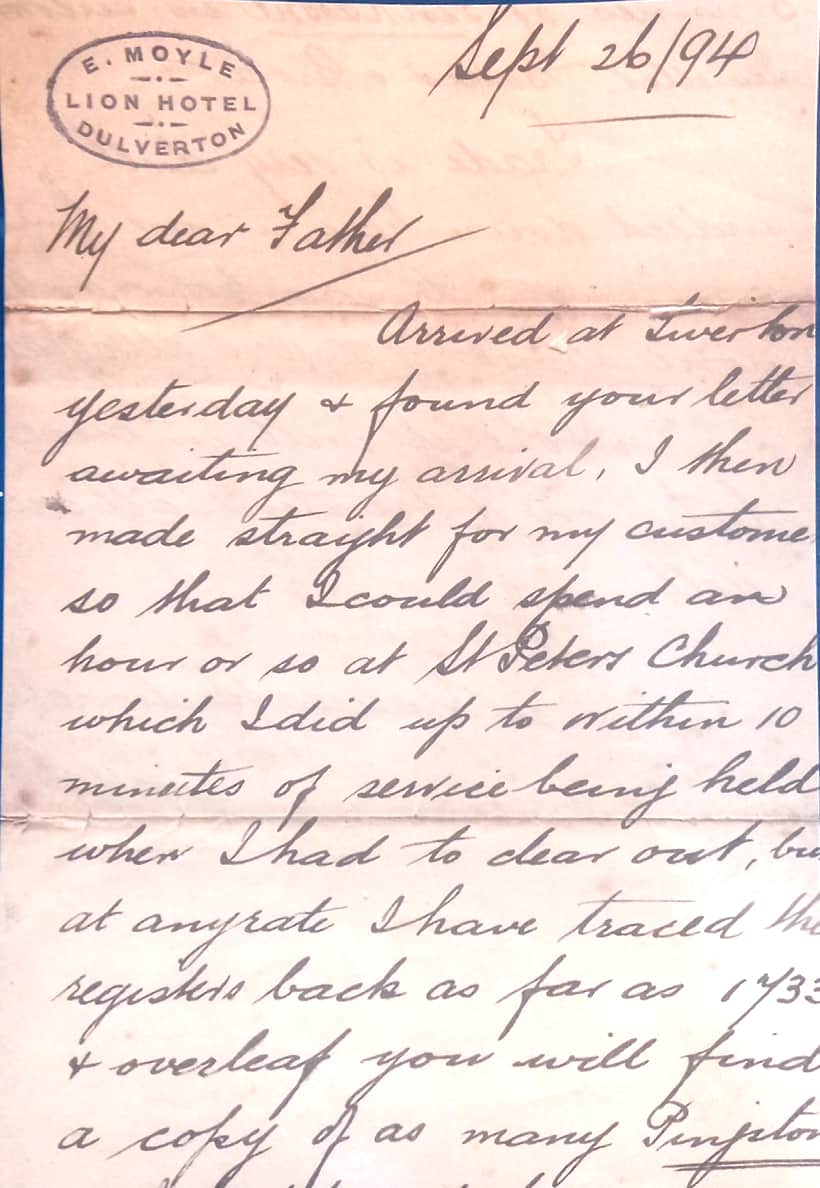 E. MOYLE
LION HOTEL
DULVERTON
Sept 26/94
My dear Father
Arrived at Tiverton
yesterday & found your letter
awaiting my arrival, I then
made straight for my custome
so that I could spend an
hour or so at St Peters Church
which I did up to within 10
minutes of service being held
when I had to clear out, bu
at anyrate I have traced the
registers back as far as 1733
& overleaf you will find
a copy of as many Pingston